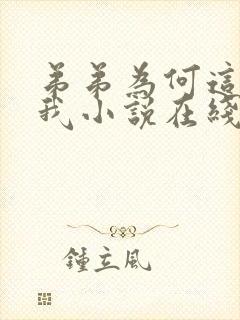 弟弟為何這
我小説在綫
鍾立風